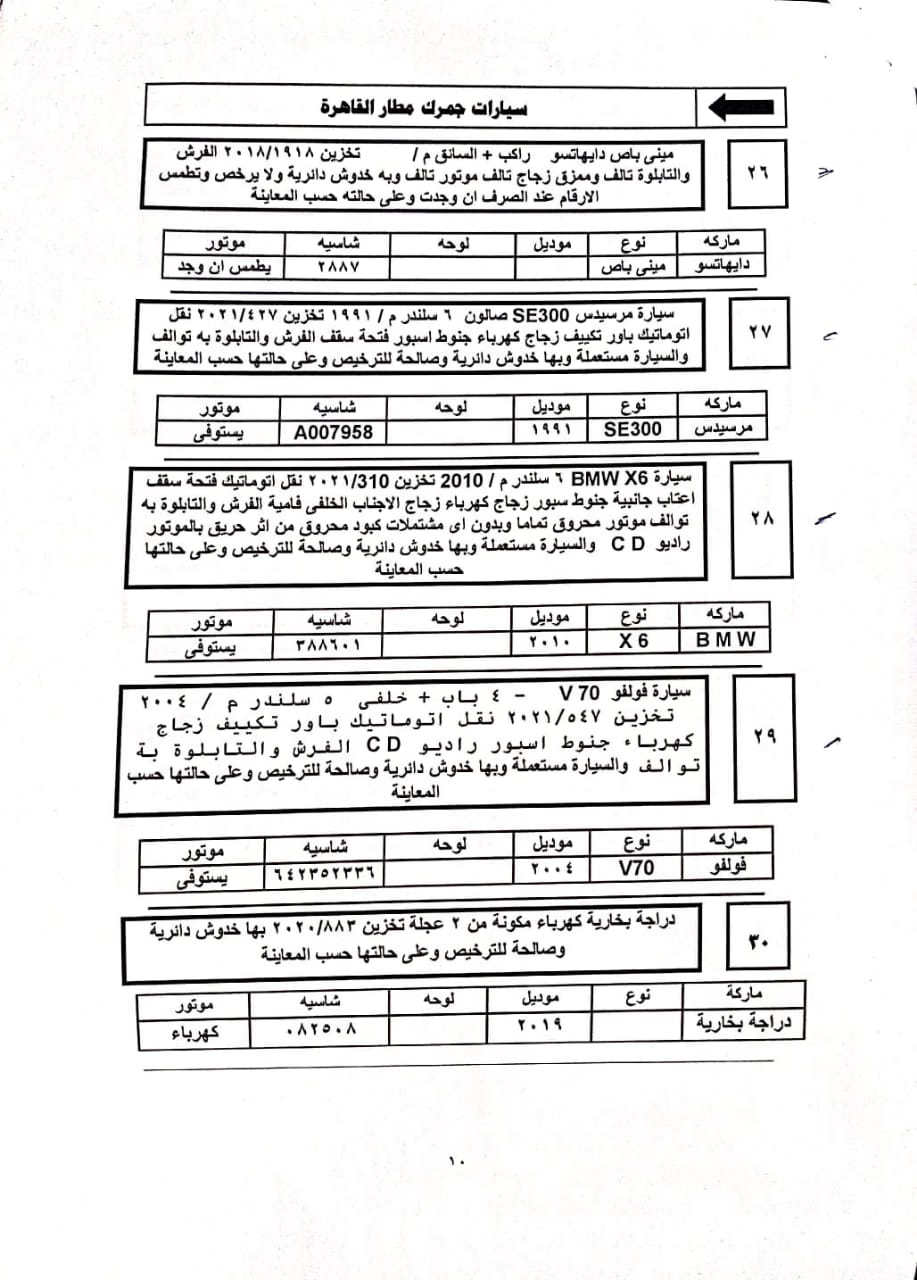 سيارات جمرك مطار القاهرة
٢٦
مينى باص دايهاتسو راكب + السائق م / تخزين ٢٠١٨/١٩١٨ الفرش
والتابلوة تالف وممزق زجاج تالف موتور تالف وبه خدوش دائرية ولا يرخص وتطمس
الارقام عند الصرف ان وجدت وعلى حالته حسب المعاينة
ماركه نوع موديل لوحه شاسيه موتور
دايهاتسو مينى باص ٢٨٨٧ يطمس ان وجد
٢٧
سيارة مرسيدس SE300 صالون ٦ سلندر م / ١٩٩١ تخزين ٢٠٢١/٤٢٧ نقل
اتوماتيك باور تكييف زجاج كهرباء جنوط اسبور فتحة سقف الفرش والتابلوة به توالف
والسيارة مستعملة وبها خدوش دائرية وصالحة للترخيص وعلى حالتها حسب المعاينة
ماركه نوع موديل لوحه شاسيه موتور
مرسيدس SE300 ١٩٩١ A007958 يستوفى
٢٨
سيارة BMW X6 ٦ سلندر م / 2010 تخزين ٢٠٢١/310 نقل اتوماتيك فتحة سقف
اعتاب جانبية جنوط سبور زجاج كهرباء زجاج الاجناب الخلفى فامية الفرش والتابلوة به
توالف موتور محروق تماما وبدون اى مشتملات كبود محروق من اثر حريق بالموتور
راديو C D والسيارة مستعملة وبها خدوش دائرية وصالحة للترخيص وعلى حالتها
حسب المعاينة
ماركه نوع موديل لوحه شاسيه موتور
B M W X 6 ٢٠١٠ ٣٨٨٦٠١ يستوفى
٢٩
سيارة فولفو V 70 - ٤ باب + خلفى ٥ سلندر م / ٢٠٠٤
تخزين ٢٠٢١/٥٤٧ نقل اتوماتيك باور تكييف زجاج
كهرباء جنوط اسبور راديو C D الفرش والتابلوة بة
توالف والسيارة مستعملة وبها خدوش دائرية وصالحة للترخيص وعلى حالتها حسب
المعاينة
ماركه نوع موديل لوحه شاسيه موتور
فولفو V70 ٢٠٠٤ ٦٤٢٣٥٢٣٣٦ يستوفى
٣٠
دراجة بخارية كهرباء مكونة من ٢ عجلة تخزين ٢٠٢٠/٨٨٣ بها خدوش دائرية
وصالحة للترخيص وعلى حالتها حسب المعاينة
ماركة نوع موديل لوحه شاسيه موتور
دراجة بخارية ٢٠١٩ ٠٨٢٥٠٨ كهرباء
١٠